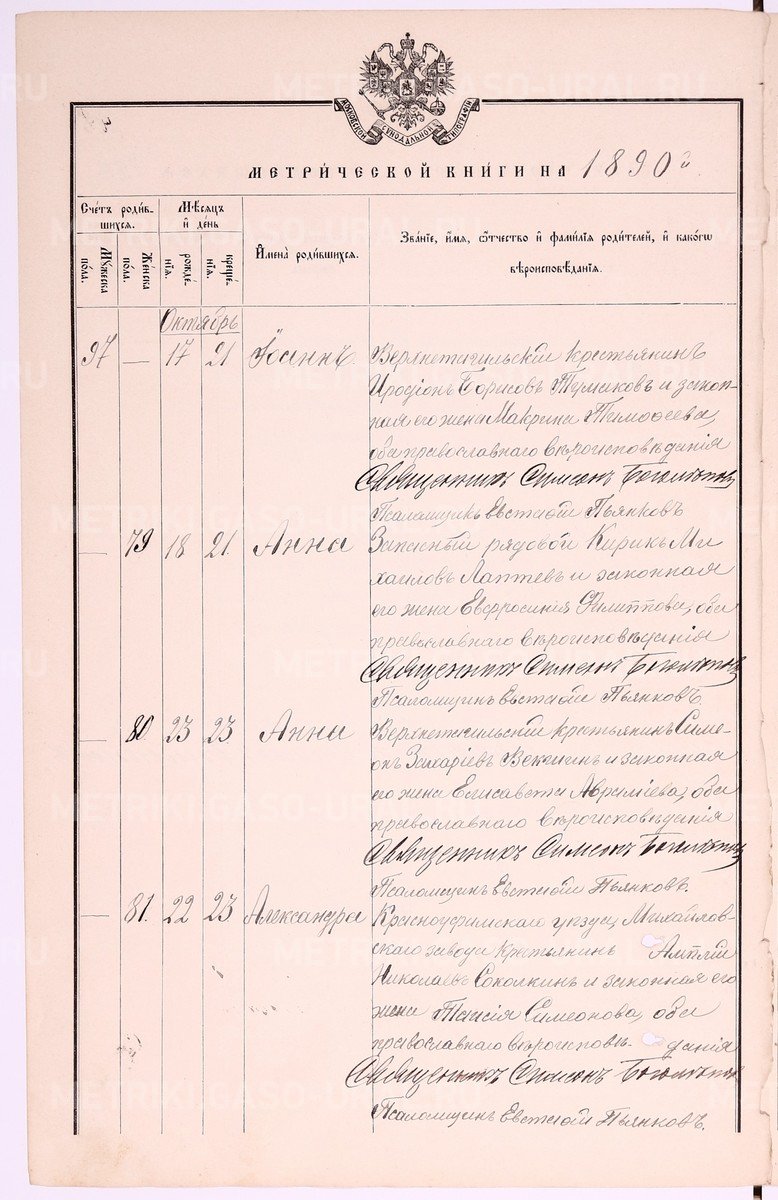 МОСКОВСКОЙ СѴНОДАЛЬНОЙ ТИПОГРАФІИ
МЕТРИ́ЧЕСКОЙ КНИ́ГИ НА 1890 г.
Сче́тъ роди́в-
шихся.
Мѣ́сяцъ
и҆ де́нь
Му́жеска
по́ла.
Же́нска
по́ла.
рожде́-
нїѧ.
креще́-
нїѧ.
И҆мена̀ роди́вшихсѧ.
Зва́нїе, и҆́мѧ, ѻ҆́тчество и҆ фами́лїѧ роди́телей, и҆ како́гѡ
вѣроисповѣ́данїѧ.
Октябрь
97 — 17 21 Іоаннъ. Верхнетагильскій крестьянинъ
Иродіонъ Борисовъ Тумаковъ и закон-
ная его жена Макрина Тимоѳеева,
оба православнаго вѣроисповѣданія
Священникъ Симеонъ Боголѣповъ
Псаломщикъ Евстафій Пьянковъ
— 79 18 21 Анна Запасный рядовой Кирикъ Ми-
хаиловъ Лаптевъ и законная
его жена Евфросинія Филиппова, оба
православнаго вѣроисповѣданія
Священникъ Симеонъ Боголѣповъ
Псаломщикъ Евстафій Пьянковъ
— 80 23 23 Анна Верхнетагильскій крестьянинъ Симе-
онъ Захаріевъ Векшинъ и законная
его жена Елисавета Авраміева, оба
православнаго вѣроисповѣданія
Священникъ Симеонъ Боголѣповъ
Псаломщикъ Евстафій Пьянковъ.
— 81. 22 23 Александра Красноуфимскаго уѣзда, Михайлов-
скаго завода крестьянинъ Амплій
Николаевъ Соколкинъ и законная его
жена Таисія Симеонова, оба
православнаго вѣроисповѣ- данія
Священникъ Симеонъ Боголѣповъ
Псаломщикъ Евстафій Пьянковъ.
METRIKI.GASO-URAL.RU